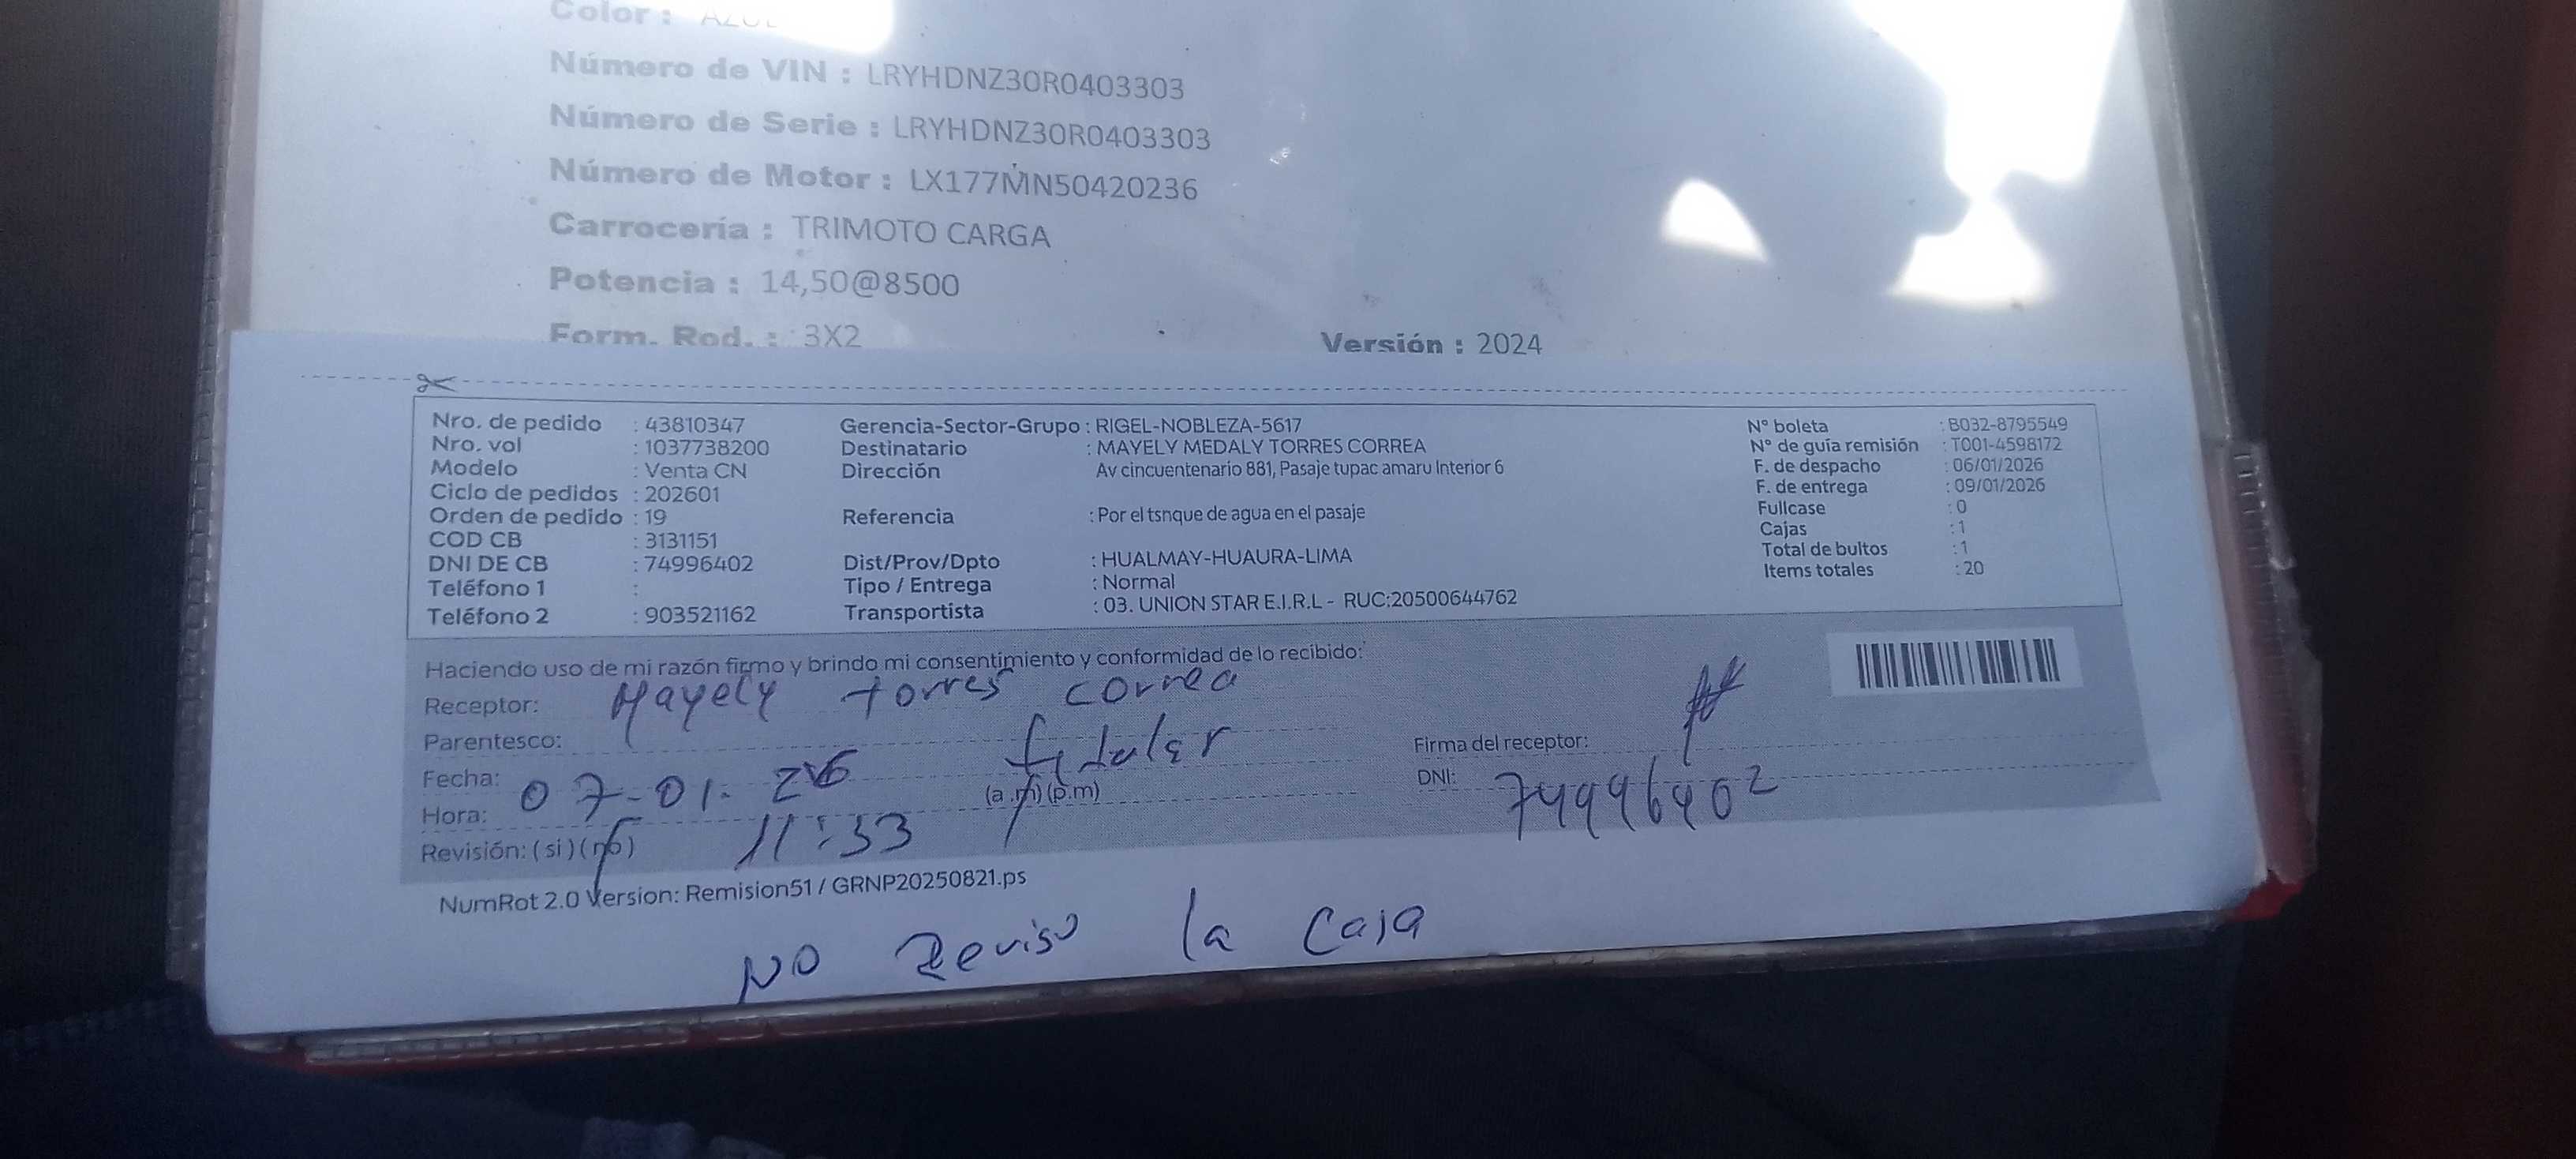 Color : AZUL
Número de VIN : LRYHDNZ30R0403303
Número de Serie : LRYHDNZ30R0403303
Número de Motor : LX177MN50420236
Carrocería : TRIMOTO CARGA
Potencia : 14,50@8500
Form. Rod. : 3X2 Versión : 2024
Nro. de pedido : 43810347 Gerencia-Sector-Grupo : RIGEL-NOBLEZA-5617 N° boleta : B032-8795549
Nro. vol : 1037738200 Destinatario : MAYELY MEDALY TORRES CORREA N° de guía remisión : T001-4598172
Modelo : Venta CN Dirección Av cincuentenario 881, Pasaje tupac amaru Interior 6 F. de despacho : 06/01/2026
Ciclo de pedidos : 202601 F. de entrega : 09/01/2026
Orden de pedido : 19 Referencia : Por el tsnque de agua en el pasaje Fullcase : 0
COD CB : 3131151 Cajas : 1
DNI DE CB : 74996402 Dist/Prov/Dpto : HUALMAY-HUAURA-LIMA Total de bultos : 1
Teléfono 1 : Tipo / Entrega : Normal Items totales : 20
Teléfono 2 : 903521162 Transportista : 03. UNION STAR E.I.R.L - RUC:20500644762
Haciendo uso de mi razón firmo y brindo mi consentimiento y conformidad de lo recibido:
Receptor: Mayely torres correa
Parentesco: titular Firma del receptor:
Fecha: 07-01-26 DNI: 74996402
Hora: 11:33 (a.m) (p.m)
Revisión: (si) (no)
NumRot 2.0 Version: Remision51 / GRNP20250821.ps
NO Reviso la Caja